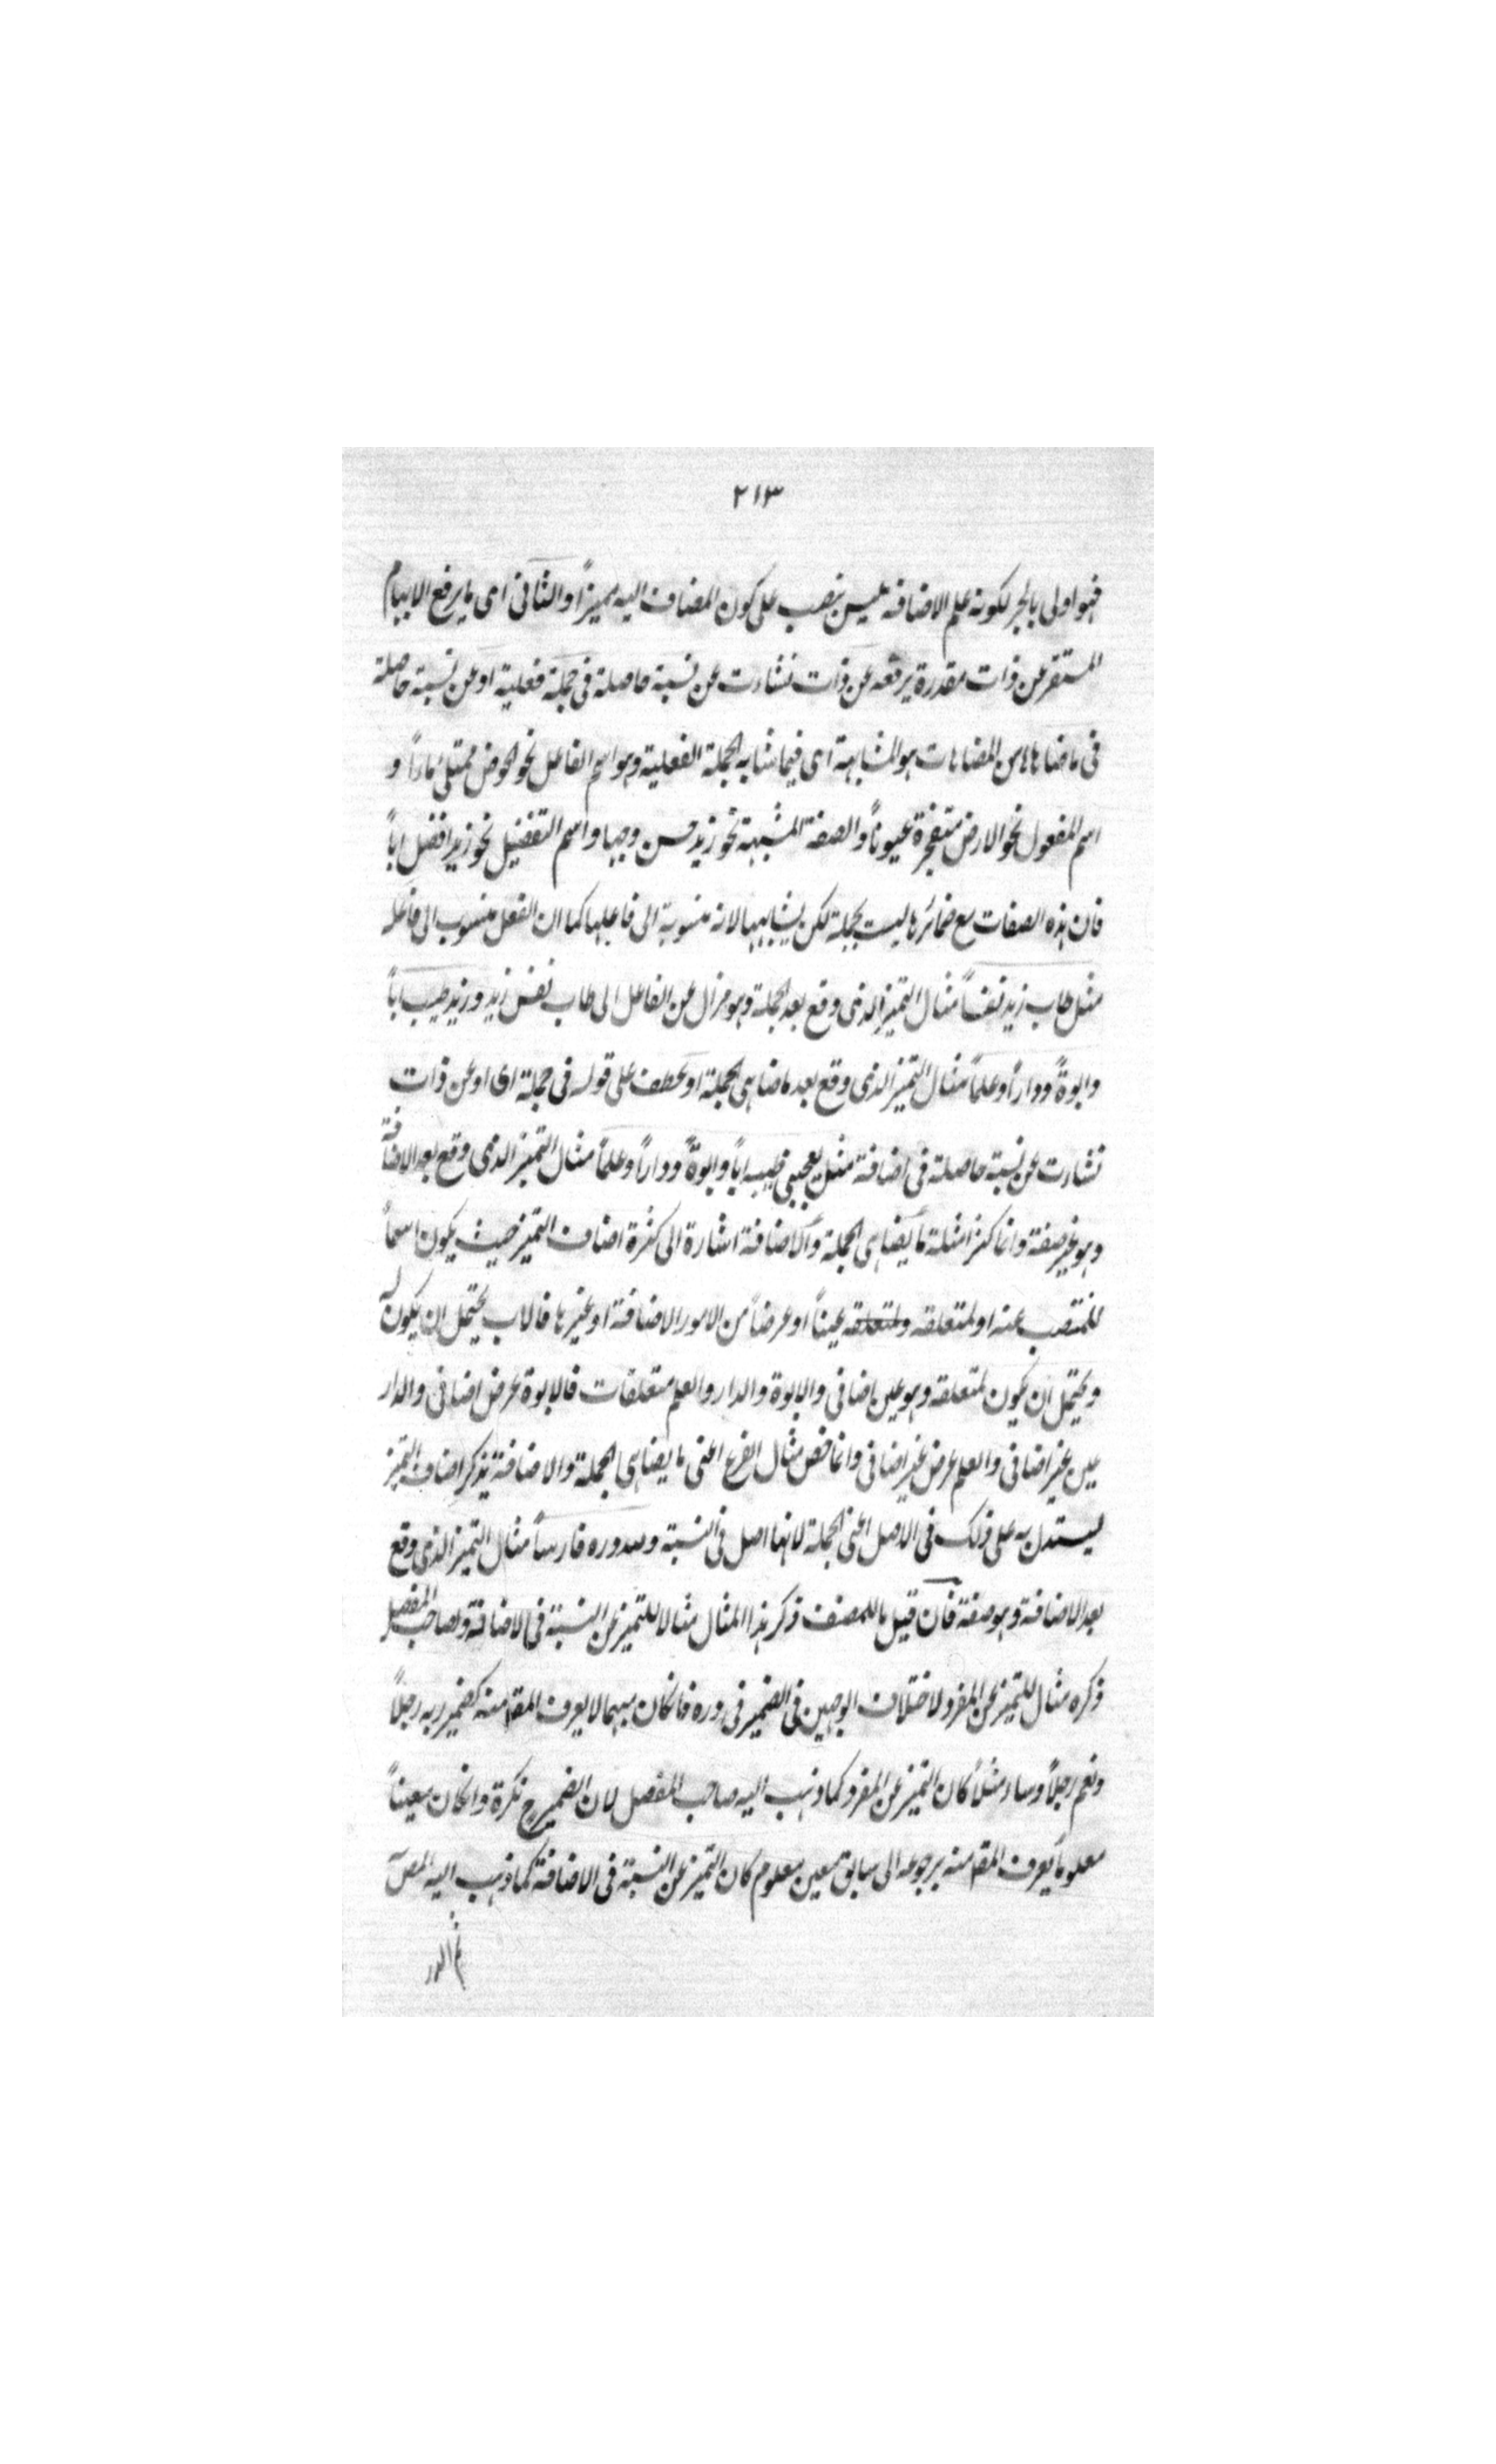 ٢١٣
فهو اولى بالجر لكونه علم الاضافة فليس بنصب على كون المضاف اليه مميزاً والثانى اى ما يرفع الابهام
المستقر عن ذات مقدرة يرفعه عن ذات نشاءت عن نسبة حاصلة فى جملة فعلية او عن نسبة حاصلة
فى ما ضاهاها من المضاهات هو المشابهة اى فيما شابه الجملة الفعلية وهو اسم الفاعل نحو الحوض ممتلئ ماءً و
اسم المفعول نحو الارض متفجرة عيوناً والصفة المشبهة نحو زيد حسن وجها واسم التفضيل نحو زيد افضل اباً
فان هذه الصفات مع ضمائرها ليست بجملة لكن يشابهها لانه منسوبة الى فاعلها كما ان الفعل منسوب الى فاعله
مثل طاب زيد نفساً مثال التميز الذى وقع بعد الجملة وهو مزال عن الفاعل الى طاب نفس زيد وزيد طيب اباً
وابوةً وداراً وعلماً مثال التميز الذى وقع بعد ما ضاهى الجملة او عطف على قوله فى جملة اى او عن ذات
نشاءت عن نسبة حاصلة فى اضافة مثل يعجبنى طيبه اباً وابوةً وداراً وعلماً مثال التميز الذى وقع بعد الاضافة
وهو غير صفة وانما كثر امثلة ما يضاهى الجملة والاضافة اشارة الى كثرة اصناف التميز حيث يكون اسماً
للمنتصب عنه او لمتعلقه ولمتعلقه عيناً او عرضاً من الامور الاضافة او غيرها فالاب يحتمل ان يكون له
ويحتمل ان يكون لمتعلقه وهو عين اضافى والابوة والدار والعلم متعلقات فالابوة عرض اضافى والدار
عين غير اضافى والعلم عرض غير اضافى وانما خص مثال الفرع اعنى ما يضاهى الجملة والاضافة بذكر اصناف التميز
ليستدل به على ذلك فى الاصل اعنى الجملة لانها اصل فى النسبة ولله دره فارساً مثال التميز الذى وقع
بعد الاضافة وهو صفة فان قيل ما للمصنف ذكر هذا المثال مثالا للتميز عن النسبة فى الاضافة ولصاحب المفصل
ذكره مثال للتميز عن المفرد لاختلاف الوجهين فى الضمير فى دره فانكان مبهما لا يعرف المقص منه كضمير ربه رجلاً
ونعم رجلاً وساء مثلاً كان التميز عن المفرد كما ذهب اليه صاحب المفصل لان الضمير ح نكرة وانكان معيناً
معلوماً يعرف المقص منه برجوعه الى سابق معين معلوم كان التميز عن النسبة فى الاضافة كما ذهب اليه المص
ثم الدر